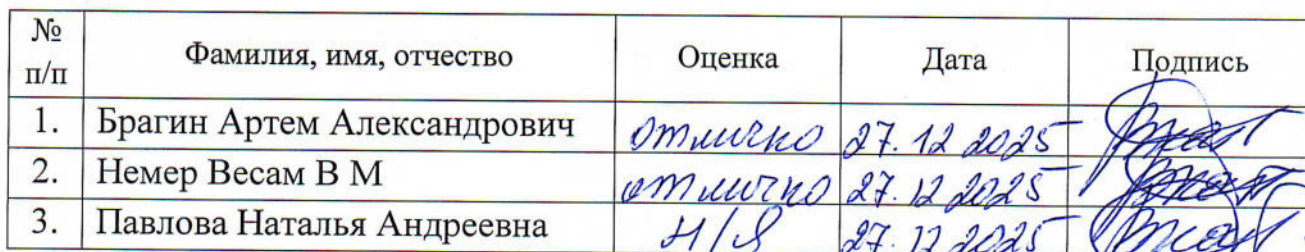 № п/п Фамилия, имя, отчество Оценка Дата Подпись
1. Брагин Артем Александрович отлично 27.12 2025
2. Немер Весам В М отлично 27.12 2025
3. Павлова Наталья Андреевна Н/Я 27.12 2025